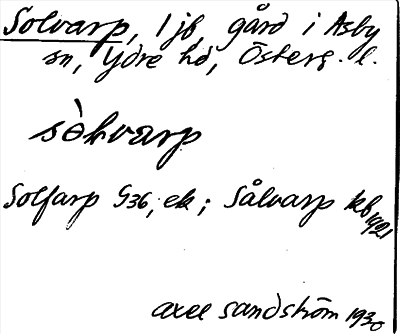 Solvarp, 1 jb, gård i Asby
sn, Ydre hd, Österg. l.
sòlvarp
Solfarp G36, ek; Sålvarp kb
1921
axel sandström 1930